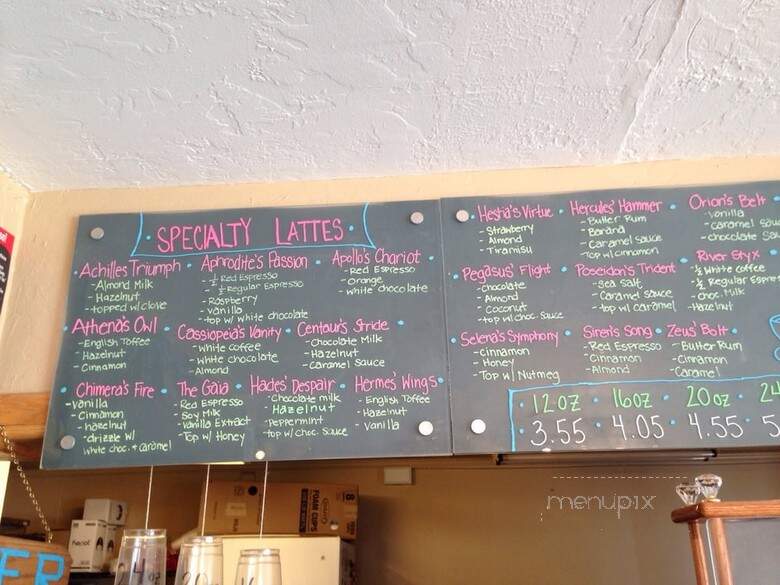 SPECIALTY LATTES
Achilles Triumph
- Almond Milk
- Hazelnut
- topped w/ clove
Aphrodite's Passion
- ½ Red Espresso
- ½ Regular Espresso
- Raspberry
- Vanilla
- top w/ white chocolate
Apollo's Chariot
- Red Espresso
- orange
- white chocolate
Athena's Owl
- English Toffee
- Hazelnut
- Cinnamon
Cassiopeia's Vanity
- White coffee
- white chocolate
- Almond
Centaur's Stride
- Chocolate Milk
- Hazelnut
- Caramel Sauce
Chimera's Fire
- Vanilla
- Cinnamon
- hazelnut
- drizzle w/
white choc. & caramel
The Gaia
- Red Espresso
- Soy Milk
- Vanilla Extract
- Top w/ Honey
Hades' Despair
- Chocolate milk
- Hazelnut
- Peppermint
- top w/ choc. Sauce
Hermes' Wings
- English Toffee
- Hazelnut
- Vanilla
Hestia's Virtue
- Strawberry
- Almond
- Tiramisu
Hercules' Hammer
- Butter Rum
- Banana
- Caramel sauce
- Top w/ cinnamon
Orion's Belt
- Vanilla
- Caramel
- chocolate
Pegasus' Flight
- chocolate
- Almond
- Coconut
- top w/ choc. Sauce
Poseidon's Trident
- Sea Salt
- Caramel Sauce
- top w/ caramel
River Styx
- ½ White coffee
- ½ Regular
- Choc. Milk
- Hazelnut
Selena's Symphony
- cinnamon
- Honey
- Top w/ Nutmeg
Siren's Song
- Red Espresso
- Cinnamon
- Almond
Zeus' Bolt
- Butter Rum
- Cinnamon
- Caramel
12oz 16oz 20oz
3.55 4.05 4.55
FOAM CUPS
menupix
ER